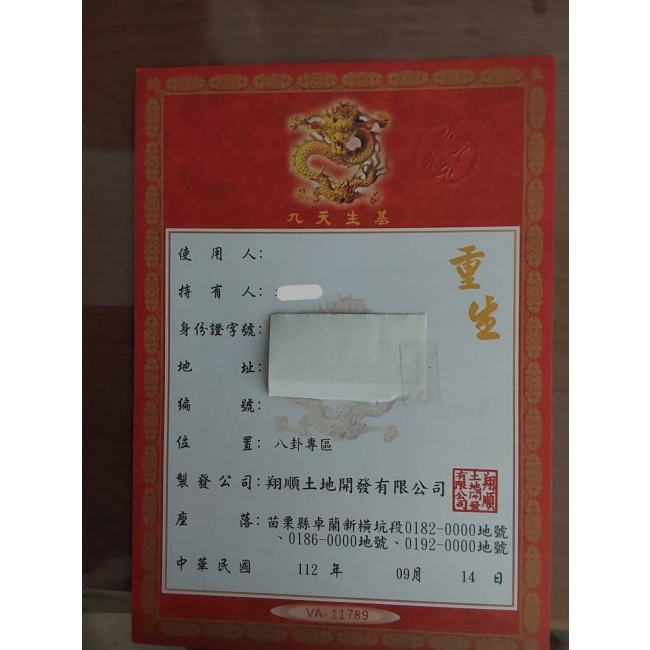 九天生基
重生
使用人:
持有人:
身份證字號:
地址:
編號:
位置: 八卦專區
製發公司: 翔順土地開發有限公司
翔順
土地開發
有限公司
座落: 苗栗縣卓蘭新橫坑段0182-0000地號
、0186-0000地號、0192-0000地號
中華民國 112 年 09月 14 日
VA-11789